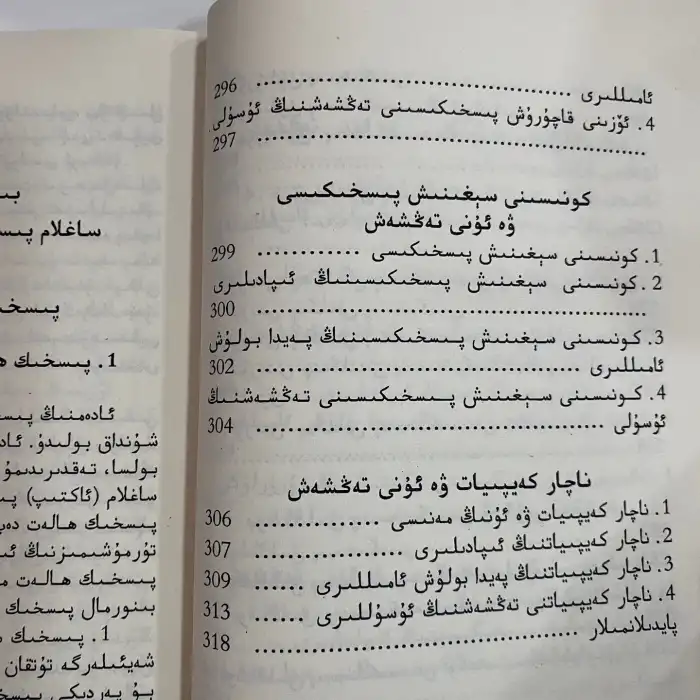 ئامىللىرى ........................................ 296
4. ئۆزىنى قاچۇرۇش پىسخىكىسىنى تەڭشەشنىڭ ئۇسۇلى
........................................ 297
كونىسىنى سېغىنىش پىسخىكىسى
ۋە ئۇنى تەڭشەش
1. كونىسىنى سېغىنىش پىسخىكىسى ............. 299
2. كونىسىنى سېغىنىش پىسخىكىسىنىڭ ئىپادىلىرى
........................................ 300
3. كونىسىنى سېغىنىش پىسخىكىسىنىڭ پەيدا بولۇش
ئامىللىرى ........................................ 302
4. كونىسىنى سېغىنىش پىسخىكىسىنى تەڭشەشنىڭ
ئۇسۇلى ........................................ 304
ناچار كەيپىيات ۋە ئۇنى تەڭشەش
1. ناچار كەيپىيات ۋە ئۇنىڭ مەنىسى ................ 306
2. ناچار كەيپىياتنىڭ ئىپادىلىرى .................. 307
3. ناچار كەيپىياتنىڭ پەيدا بولۇش ئامىللىرى ...... 309
4. ناچار كەيپىياتنى تەڭشەشنىڭ ئۇسۇللىرى ...... 313
پايدىلانمىلار ........................................ 318
ساغلام
1. پىسخىك
ئادەمنىڭ
شۇنداق بولىدۇ.
بولسا، تەقدىرىدىمۇ
ساغلام (ئاكتىپ)
پىسخىك ھالەت
تۇرمۇشىمىزنىڭ
پىسخىك ھالەت
بىنورمال پىسخىك
1. پىسخىك
شەيئىلەرگە تۇتقان
بۇ يەردىكى